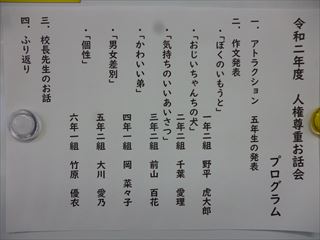 令和二年度　人権尊重お話会
プログラム
一、アトラクション　五年生の発表
二、作文発表
・「ぼくのいもうと」　一年二組　野平　虎太郎
・「おじいちゃんちの犬」　二年二組　千葉　愛理
・「気持ちのいいあいさつ」　三年二組　前山　百花
・「かわいい弟」　四年一組　岡　菜々子
・「男女差別」　五年二組　大川　愛乃
・「個性」　六年一組　竹原　優衣
三、校長先生のお話
四、ふり返り